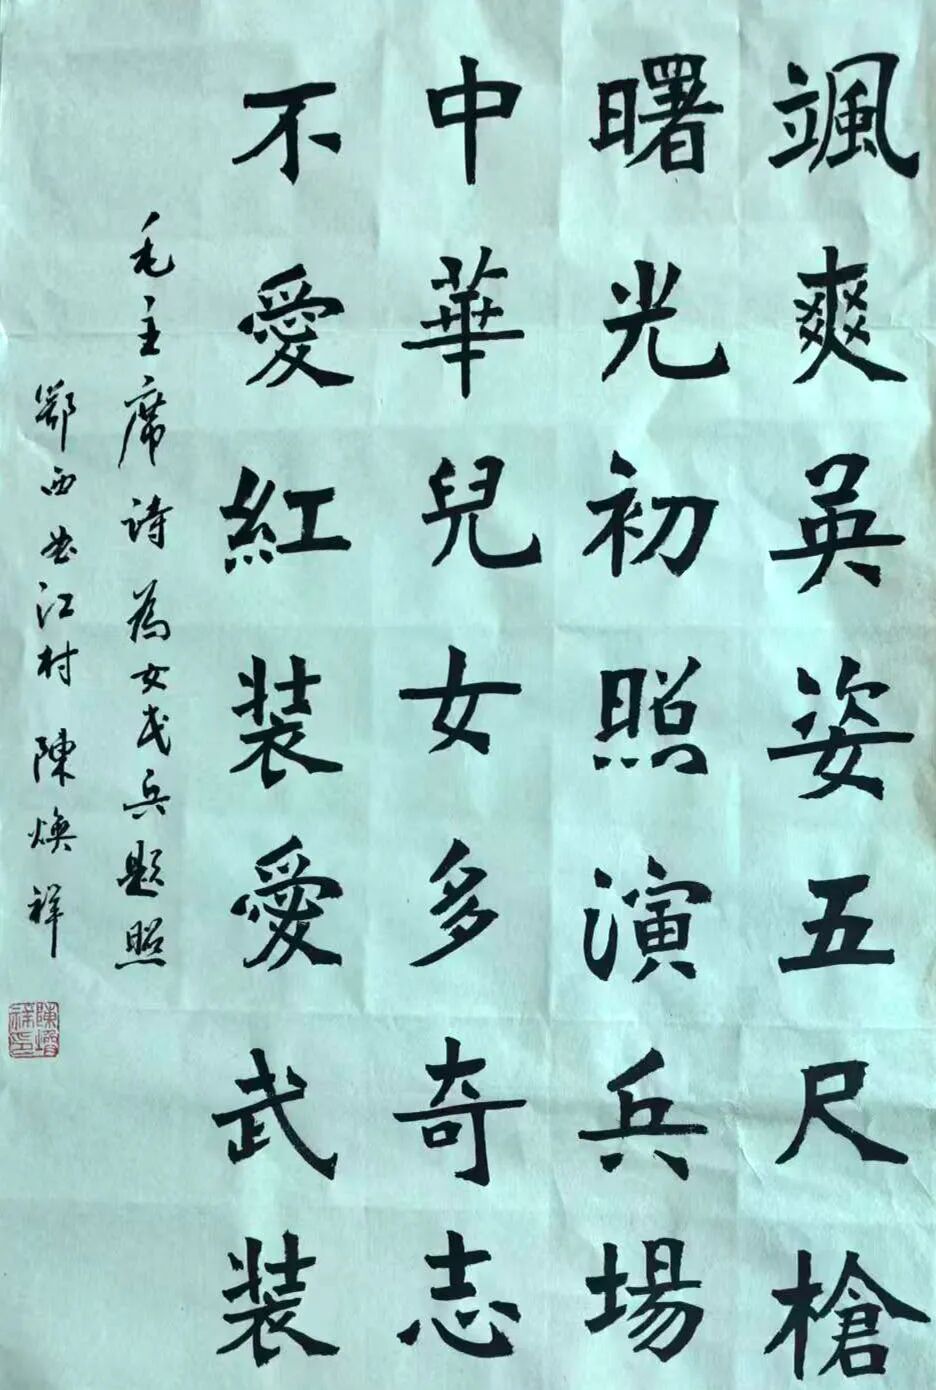 颯爽英姿五尺槍
曙光初照演兵場
中華兒女多奇志
不愛紅裝愛武裝
毛主席诗為女民兵题照
鄂西江村 陳煥祥